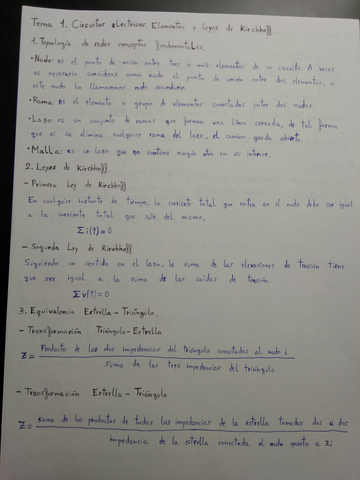 Tema 1. Circuitos electricos. Elementos y Leyes de Kirchhoff.
1. Topología de redes conceptos fundamentales.
• Nudo: es el punto de unión entre tres o más elementos de un circuito. A veces
es necesario considerar como nudo el punto de unión entre dos elementos, a
este nudo lo llamaremos nudo secundario.
• Rama: es el elemento o grupo de elementos conectados entre dos nudos.
• Lazo: es un conjunto de ramas que forman una línea cerrada, de tal forma
que si se elimina cualquier rama del lazo, el camino queda abierto.
• Malla: es un lazo que no contiene ningún otro en su interior.
2. Leyes de Kirchhoff
- Primera Ley de Kirchhoff
En cualquier instante de tiempo, la corriente total que entra en el nudo debe ser igual
a la corriente total que sale del mismo.
Σi(t)=0
- Segunda Ley de Kirchhoff
Siguiendo un sentido en el lazo, la suma de las elevaciones de tensión tiene
que ser igual a la suma de las caídas de tensión.
Σv(t)=0
3. Equivalencia Estrella - Triángulo.
- Transformación Triángulo - Estrella
Z = Producto de las dos impedancias del triángulo conectadas al nudo i
Suma de las tres impedancias del triángulo
- Transformación Estrella - Triángulo
Z = Suma de los productos de todas las impedancias de la estrella tomadas dos a dos
impedancia de la estrella conectada al nudo opuesto a Zi